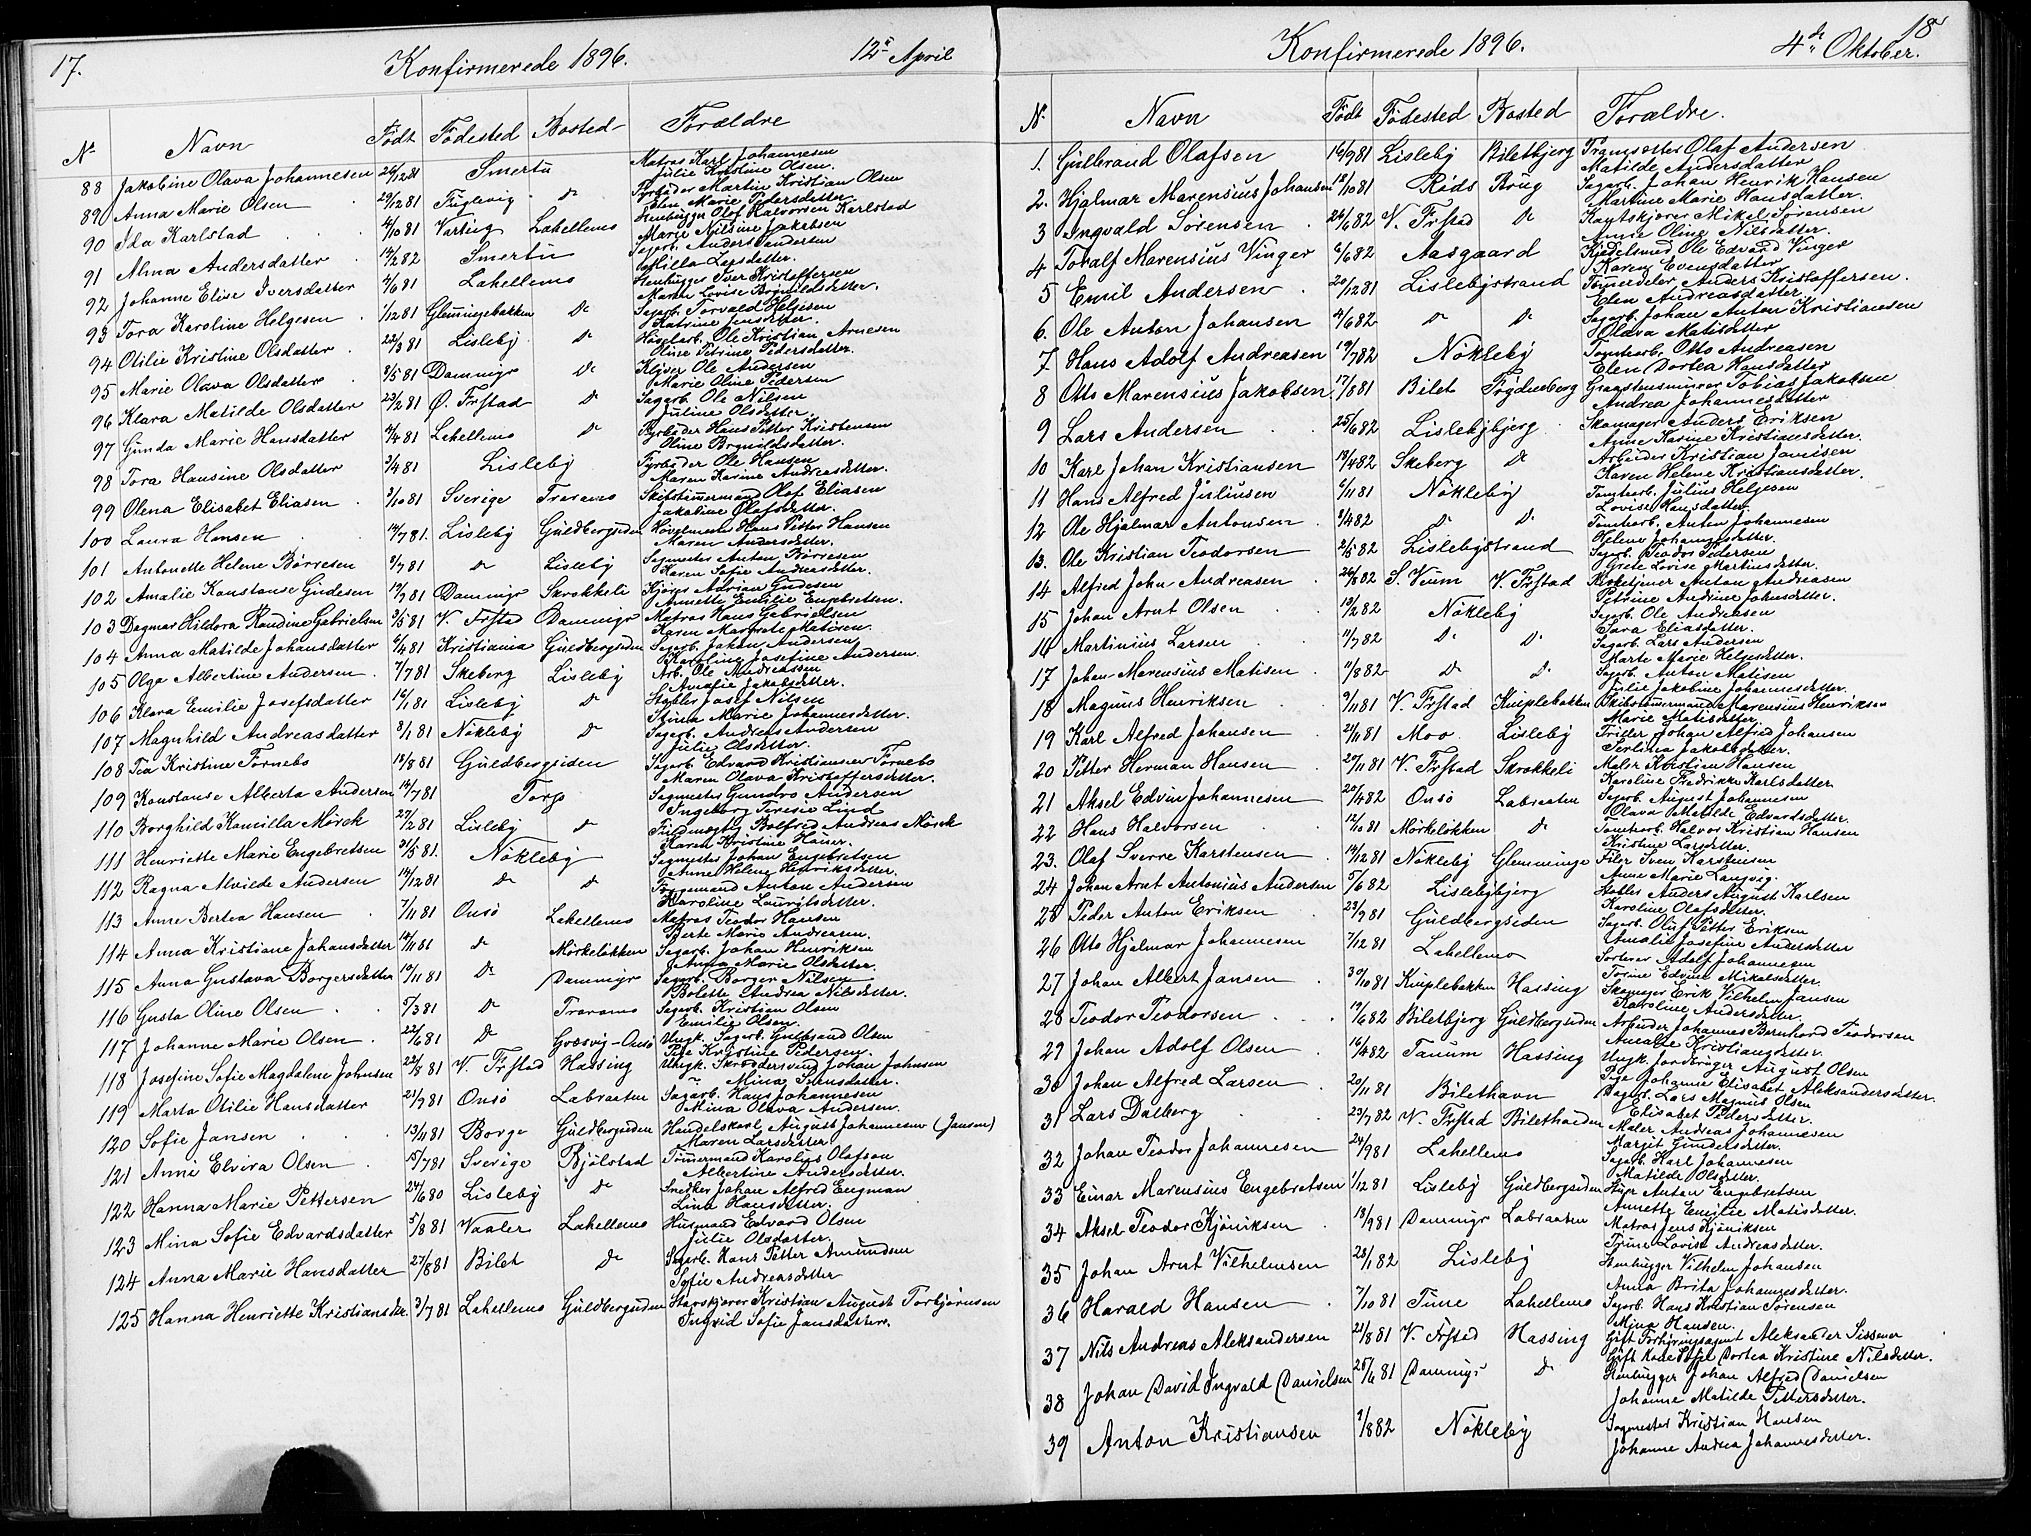 17.
Konfirmerede 1896.
12te April
No Navn Født Fødested Bosted Forældre
88 Jakobine Olava Johannesen 26/2 81 Smertu Matros Karl Johannesen
Julie Kristine Olsen.
89 Anna Marie Olsen 29/2 81 Fuglevig do Fyrbøder Martin Kristian Olsen
Elen Marie Pedersdatter.
90 Ida Karlstad 4/10 81 Vartieg Lahellemo Stenhugger Olof Halvorsen Karlstad
Marie Nilsine Jakobsen
91 Alma Andersdatter 14/2 82 Smertu Sagarb. Anders
Larsdatter.
92 Johanne Elise Iversdatter 4/6 81 Lahellemo Stenhugger Iver Kristoffersen
Maren Lovise
93 Tora Karoline Helgesen 1/12 81 Glemmingebakken do Sagarb. Torvald Helgesen
Katrine Jensdatter.
94 Otilie Kristine Olsdatter 22/3 81 Lisleby do Høvelarb. Ole Kristian Arnesen
Oline Petrine Pedersdatter.
95 Marie Olava Olsdatter 3/5 81 Dammyr do Kløver Ole Andersen
Marie Oline Pedersen
96 Klara Matilde Olsdatter 23/2 81 Ø. Frstad do Sagarb. Ole Nilsen
Juline Olsdatter.
97 Gunda Marie Hansdatter 4/4 81 Lahellemo do Fyrbøder Hans Petter Kristensen
Oline
98 Tora Hansine Olsdatter 3/4 81 Lisleby Fyrbøder Ole Hansen
Maren Karine Andreasdatter.
99 Olena Elisabet Eliasen 3/10 81 Sverige Traramo Skibstømmermand Olof Eliasen
Jakobine Olafsdatter.
100 Laura Hansen 14/7 81. Lisleby Guldbergsiden Hans Petter Hansen
Maren Andersdatter.
101 Antonette Helene Børresen 8/7 81 do Lisleby Sagmester Anton Børresen
Karen Sofie Andreasdatter.
102 Amalie Konstanse Gudesen 19/9 81 Dammyr Skrokkeli Kjører Adrian Gudesen
Annette Emilie Engebretsen.
103 Dagmar Hildora Klaudine Gabrielsen 3/5 81 V. Frstad Dammyr Matros Hans Gabrielsen
Karen Margrete Matisen.
104 Anna Matilde Johansdatter 6/4 81 Kristiania Guldbergsiden Sagarb. Johan Andersen
Karoline Josefine Andersen.
105 Olga Albertine Andersen 7/7 81 Skeberg Lisleby Arb. Ole Andreassen
Jakobsdatter.
106 Klara Emilie Josefsdatter 16/1 81 Lisleby do Stabler Josef Nilsen
Stina Marie Johannesdatter.
107 Magnhild Andreasdatter 8/1 81 Nøkleby do Sagarb. Andreas Andersen
Julie Olsdatter.
108 Tea Kristine Tornebo 13/8 81 Guldbergsiden Sagarb. Edvard Kristiansen Tornebo
Maren Olava Kristoffersdatter.
109 Konstanse Alberta Andersen 14/7 81 Torp Sagmester Gundro Andersen
Ingeborg Teresie Lind
110 Borghild Kamilla Mørck 27/2 81 Lisleby do Fuldmægtig Bolfred Andreas Mørck
Karen Kristine
111 Henriette Marie Engebretsen 31/5 81. Nøkleby Sagmester Johan Engebretsen
Anne Helene Henriksdatter.
112 Ragna Alvilde Andersen 14/12 81 do do Anton Andersen
Karoline Lauritsdatter.
113 Anne Bertea Hansen 7/11 81 Onsø Lahellemo Matros Teodor Hansen
Berte Marie Andreasen.
114 Anna Kristiane Johansdatter 14/11 81 do Mørkeløkken Sagarb. Johan Henriksen
Anna Marie Olsdatter.
115 Anna Gustava Borgersdatter 10/11 81 do Dammyr Sagarb. Borger Nilsen
Bolette Andrea Nilsdatter.
116 Gusta Oline Olsen 5/3 81 do Traramo Sagarb. Kristian Olsen
Emilie Olsen.
117 Johanne Marie Olsen 22/6 81 do Græsvig-Onsø Ungk. Sagarb. Gulbrand Olsen
Pige Kristine Pedersen.
118 Josefine Sofie Magdalene Johnsen 22/8 81 V. Frstad Hassing Ungk. Skræddersvend Johan Johnsen
" Mina Svensdatter.
119 Marta Otilie Hansdatter 21/9 81 Onsø Labraaten Sagarb. Hans Johannesen
Mina Olava Andersen.
120 Sofie Jansen 13/11 81 Borge Guldbergsiden Handelskarl August Johannesen (Jansen)
Maren Larsdatter
121 Anne Elvira Olsen 15/7 81 Sverige Bjølstad Tømmermand Karolius Olafson
Albertine Andersdatter.
122 Hanna Marie Pettersen 24/6 80 Lisleby do Snedker Johan Alfred Engman
Lina Hansdatter.
123 Mina Sofie Edvardsdatter 5/8 81 Vaaler Lahellemo Husmand Edvard Olsen
Julie Olsdatter.
124 Anna Marie Hansdatter 27/8 81 Bilet do Sagarb. Hans Petter Amundsen
Sofie Andreasdatter
125 Hanna Henriette Kristiansdtr. 3/7 81 Lahellemo Guldbergsiden Kristian August Torbjørnsen
Ingrid Sofie Jansdatter.
18
Konfirmerede 1896.
4de Oktober.
No Navn Født Fødested Bosted Forældre.
1. Gulbrand Olafsen 16/9 81 Lisleby Biletbjerg Olaf Andersen
Matilde Andersdatter
2. Hjalmar Marensius Johansen 12/10 81 Rids Brug Sagarb. Johan Henrik Hansen
Martine Marie Hansdatter.
3 Ingvald Sørensen 26/6 82 V. Frstad do Kaptskjører Mikal Sørensen
Annie Oline Nilsdatter.
4 Toralf Marensius Vinger 6/6 82 Aasgaard Kjedelsmed Ole Edvard Vinger
Karen Evensdatter
5 Emil Andersen 20/12 81 Lislebystrand Tømmerdeler Anders Kristoffersen.
Elen Andreasdatter
6. Ole Anton Johansen 4/6 82 do do Sagarb. Johan Anton Kristiansen
Olava Matisdatter
7 Hans Adolf Andreasen 19/7 82 Nøkleby Tomtearb. Otto Andreasen
Elen Dortea Hansdatter
8 Otto Marensius Jakobsen 17/8 81 Bilet Frydenberg Graastensminrer Tobias Jakobsen
Andrea Johannesdatter
9 Lars Andersen 25/6 82 Lislebybjerg Skomager Anders Eriksen
Anne Karine Kristiansdatter.
10 Karl Johan Kristiansen 18/4 82 Skeberg do Arbeider Kristian Jonisen
Karen Helene Kristiansdatter.
11 Hans Alfred Juliusen 6/11 81 Nøkleby Tomtearb. Julius Helgesen
Lovise Hansdatter.
12 Ole Hjalmar Antonsen 8/4 82 do do Tomtearb. Anton Johannesen
Helene Johannesdatter.
13. Ole Kristian Teodorsen 2/5 82 Lislebystrand Sagarb. Teodor Pedersen
Grete Lovise Martinsdatter.
14 Alfred John Andreasen 26/8 82 S. Veum V. Frstad Kirketjener Anton Andreasen
Petrine Andrine Johnsdatter.
15 Johan Arnt Olsen 19/2 82 Nøkleby Sagarb. Ole Andreasen
Sara Eliasdatter.
16 Martinius Larsen 11/7 82 do do Sagarb. Lars Andersen
Marte Marie Helgesdatter.
17 Johan Marensius Matisen 11/8 82 do do Sagarb. Anton Matisen
Julie Jakobine Johannesdatter
18 Magnus Henriksen 9/11 81 V. Frstad Kniplebakken Skibstømmermand Marensius Henriksen
Marie Matisdatter.
19 Karl Alfred Johansen 21/11 81 Moss. Lisleby Triller Johan Alfred Johansen
Serlina Jakobsdatter.
20 Petter Herman Hansen 29/11 81 V. Frstad Skrokkeli Maler Kristian Hansen
Karoline Fredrikke Karlsdatter
21 Aksel Edvin Johannesen 20/4 82 Onsø Labraaten Sagarb. August Johannesen
Olava Matilde Edvardsdatter.
22 Hans Halvorsen 12/10 81 Mørkeløkken do Tomtearb. Halvor Kristian Hansen
Kristine Larsdatter.
23. Olaf Sverre Karstensen 14/12 81 Nøkleby Glemminge Filer Sven Karstensen
Anne Marie Langvig.
24 Johan Arnt Antonius Andersen 5/6 82 Lislebybjerg Stabler Anders August Karlsen
Karoline Olafsdatter.
25 Peder Anton Eriksen 23/9 81 Guldbergsiden Sagarb. Oluf Petter Eriksen
Amalie Josefine Andersdatter
26 Otto Hjalmar Johannesen 7/12 81 Lahellemo Sorterer Adolf Johannesen
Torine Edvine Mikalsdatter.
27 Johan Albert Jansen 30/10 81 Kniplebakken Hassing Skomager Erik Vilhelm Jansen
Karoline Andersdatter.
28 Teodor Teodorsen 19/6 82 Biletbjerg Guldbergsiden Arbeider Johannes Bernhard Teodorsen
Amalie Kristiansdatter.
29 Johan Adolf Olsen 16/4 82 Tanum Hassing Ungk. Jordbruger August Olsen
Pige Johanne Elisabet Aleksandersdatter.
30 Johan Alfred Larsen 20/11 81 Bilethavn Sagarb. Lars Magnus Olsen
Elisabet Pedersdatter.
31 Lars Dalberg 23/7 82 V. Frstad Biletholden Maler Andreas Johannesen
Margit Gundersdatter.
32 Johan Teodor Johannesen 24/9 81 Lahellemo Sagarb. Karl Johannesen
Matilde Olsdatter.
33 Einar Marensius Engebretsen 1/12 81 Lisleby Guldbergsiden Anton Engebretsen
Annette Emilie Matisdatter.
34 Aksel Teodor Kjøniksen 18/9 81 Dammyr Labraaten Matros Jens Kjøniksen
Trine Lovise Andreasdatter.
35 Johan Arnt Vilhelmsen 23/1 82 Lisleby Stenhugger Vilhelm Johansen
Anna Brita Johannesdatter.
36 Harald Hansen 7/10 81 Tune Lahellemo Sagarb. Hans Kristian Sørensen
Mina Hansen.
37 Nils Andreas Aleksandersen 21/8 81 V. Frstad Hassing Gift Forhyringsagent Aleksander Sissener
Gift Kone Sofie Dortea Kristine Nilsdatter.
38 Johan David Ingvald Danielsen 25/6 81 Dammyr do Stenhugger Johan Alfred Danielsen
Johanne Matilde Pettersdatter.
39 Anton Kristiansen 1/8 82 Nøkleby Sagmester Kristian Hansen
Johanne Andrea Johannesdatter.